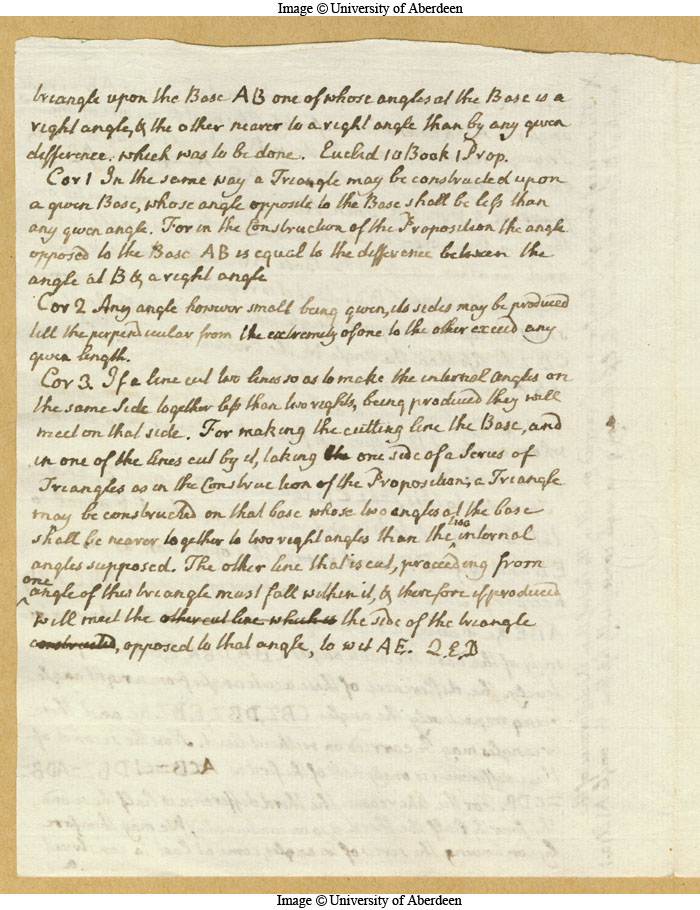 Image © University of Aberdeen
triangle upon the Base AB one of whose angles at the Base is a
right angle, & the other nearer to a right angle than by any given
difference. which was to be done. Euclid 10 Book 1 Prop.
Cor 1 In the same way a Triangle may be constructed upon
a given Base, whose angle opposite to the Base shall be less than
any given angle. For in the Construction of the Proposition the angle
opposed to the Base AB is equal to the difference between the
angle at B & a right angle
Cor 2 Any angle however small being given, its sides may be produced
till the perpendicular from the extremity of one to the other exceed any
given length.
Cor 3. If a line cut two lines so as to make the internal angles on
the same side together less than two rights, being produced they will
meet on that side. For making the cutting line the Base, and
in one of the lines cut by it, taking the one side of a Series of
Triangles as in the Construction of the Proposition, a Triangle
may be constructed on that base whose two angles at the base
shall be nearer together to two right angles than the two internal
angles supposed. The other line that is cut, proceeding from
one angle of this triangle must fall within it, & therefore if produced
will meet the other cut line which is the side of the triangle
constructed, opposed to that angle, to wit AE. Q.E.D
Image © University of Aberdeen